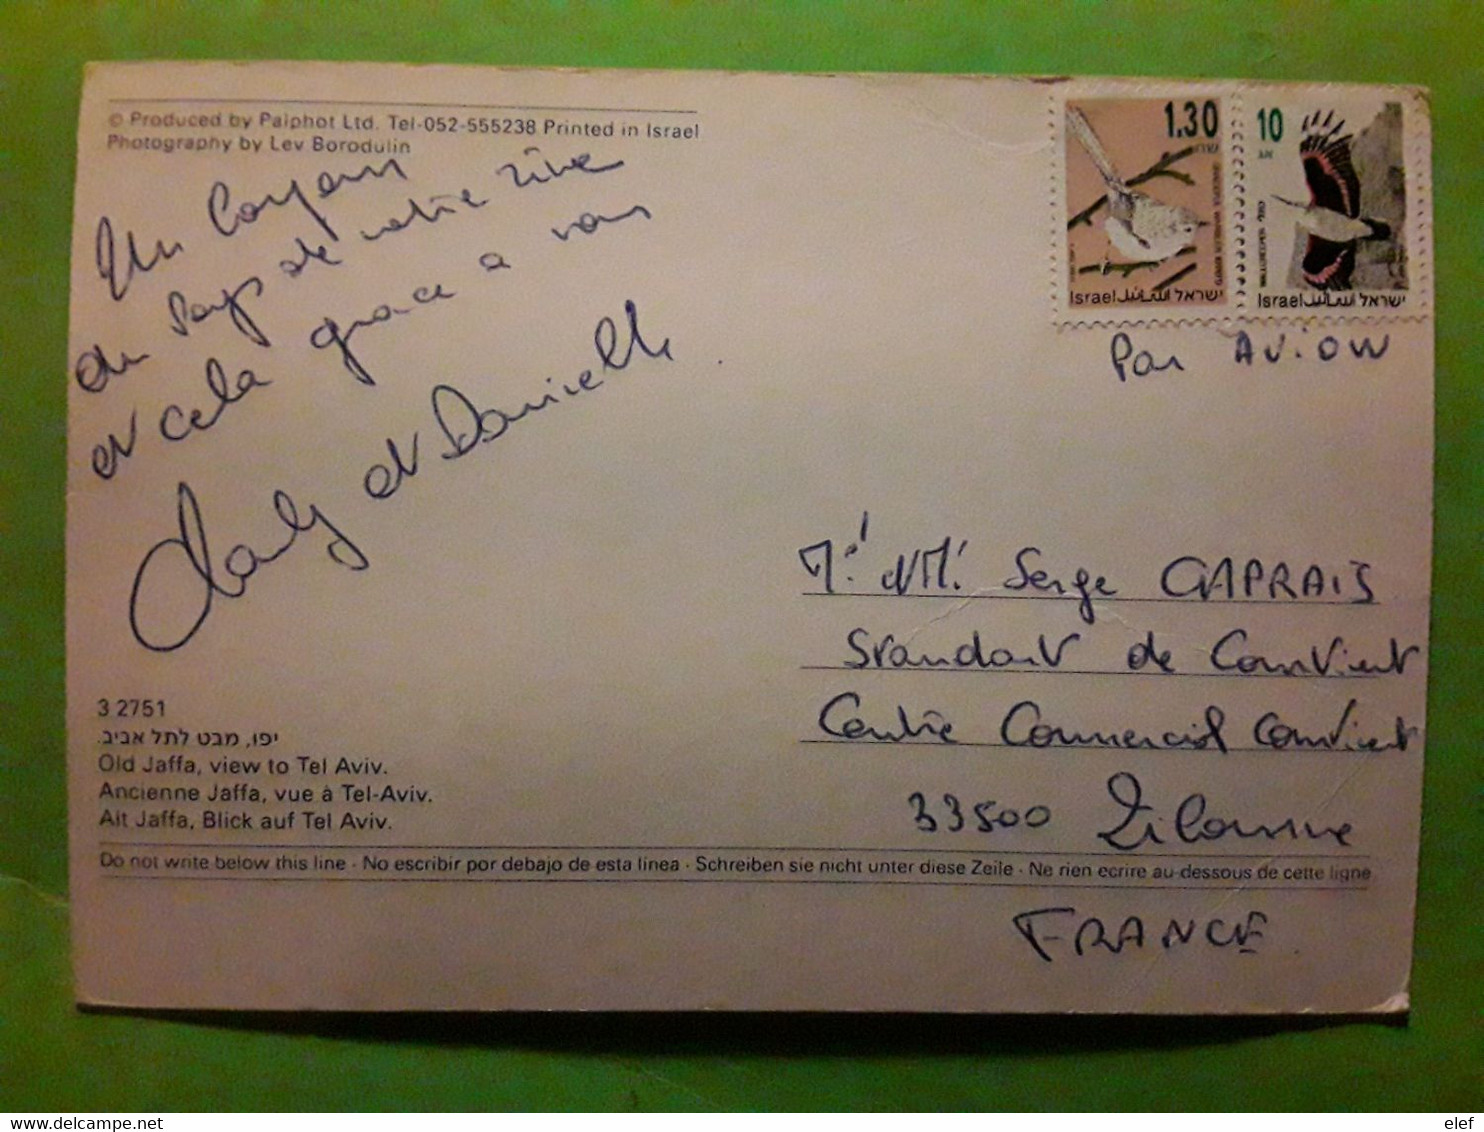 © Produced by Palphot Ltd. Tel-052-555238 Printed in Israel
Photography by Lev Borodulin
Un
du Pays de votre rêve
et cela grace a vous
et Danielle
1.30
10
אג
Israel اسرائيل ישראל
Israel اسرائيل ישראל
Par AViON
M. et M. Serge CAPRAIS
Standard de
Centre Commercial
33500 Libourne
FRANCE
3 2751
יפו, מבט לתל אביב.
Old Jaffa, view to Tel Aviv.
Ancienne Jaffa, vue à Tel-Aviv.
Alt Jaffa, Blick auf Tel Aviv.
Do not write below this line · No escribir por debajo de esta linea · Schreiben sie nicht unter diese Zeile · Ne rien ecrire au-dessous de cette ligne
elef